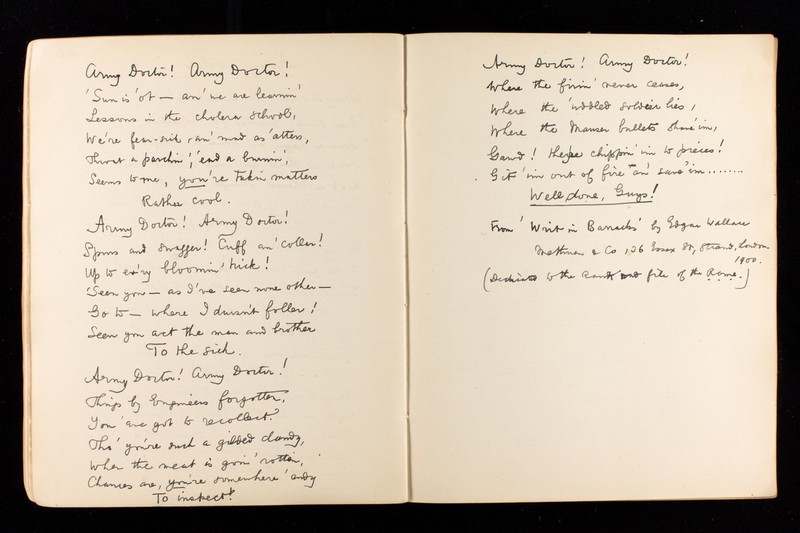 Army Doctor! Army Doctor!
'Sun is 'ot — an' we are learnin'
Lessons in the cholera school,
We're fear-sick, an' mad as 'atters,
Throat a parchin', 'ead a burnin',
Seems to me, you're takin matters
Rather cool.
Army Doctor! Army Doctor!
Spurs and swagger! Cuff an' collar!
Up to ev'ry bloomin' trick!
'Seen you — as I've seen none other —
Go to — where I dursn't foller!
Seen you act the man and brother
To the sick.
Army Doctor! Army Doctor!
Things by Engineers forgotten,
You 'ave got to recollect.
Tho' you're such a gilded dandy,
When the meat is goin' rotten,
Chances are, you're somewhere 'andy
To inspect!
Army Doctor! Army Doctor!
Where the firin' never ceases,
Where the 'uddled soldier lies,
Where the Mauser bullets shave 'im,
Gawd! they're chippin' 'im to pieces!
Git 'im out of fire an' save 'im........
Well done, Guys!
From 'Writ in Barracks' by Edgar Wallace
Methuen & Co, 36 Essex St, Strand, London
1900.
(Dedicated to the Rank and file of the R.A.M.C.)